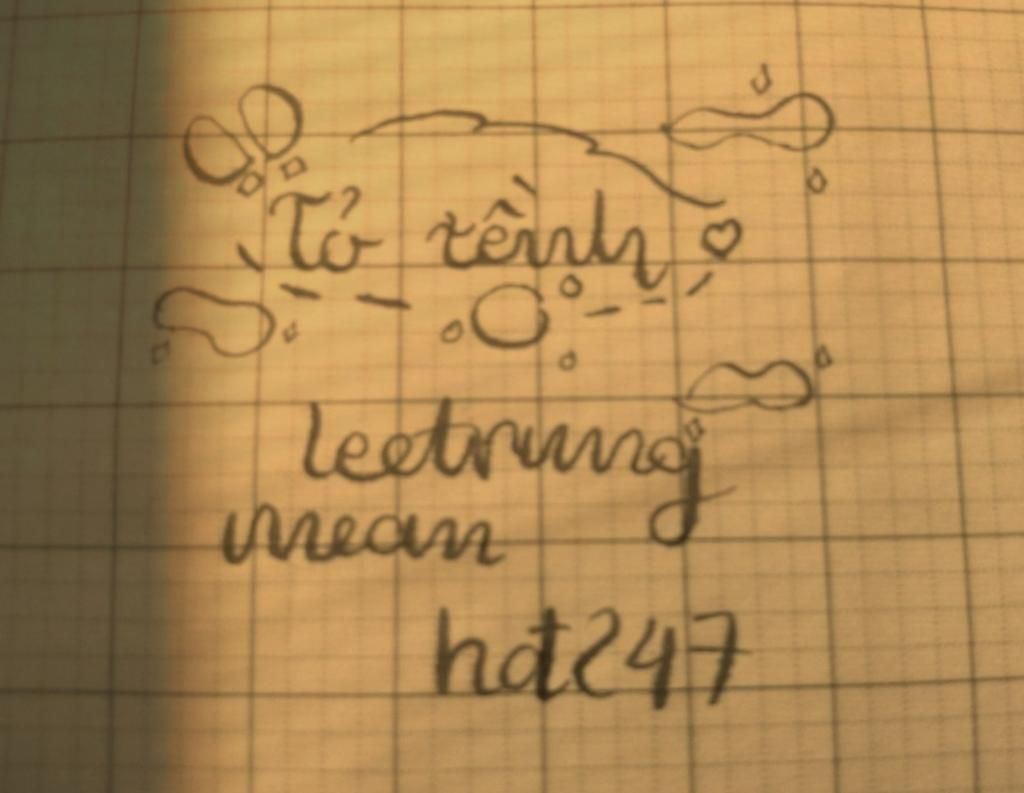 Tỏ tềnh
leetrung
mean
hdt247